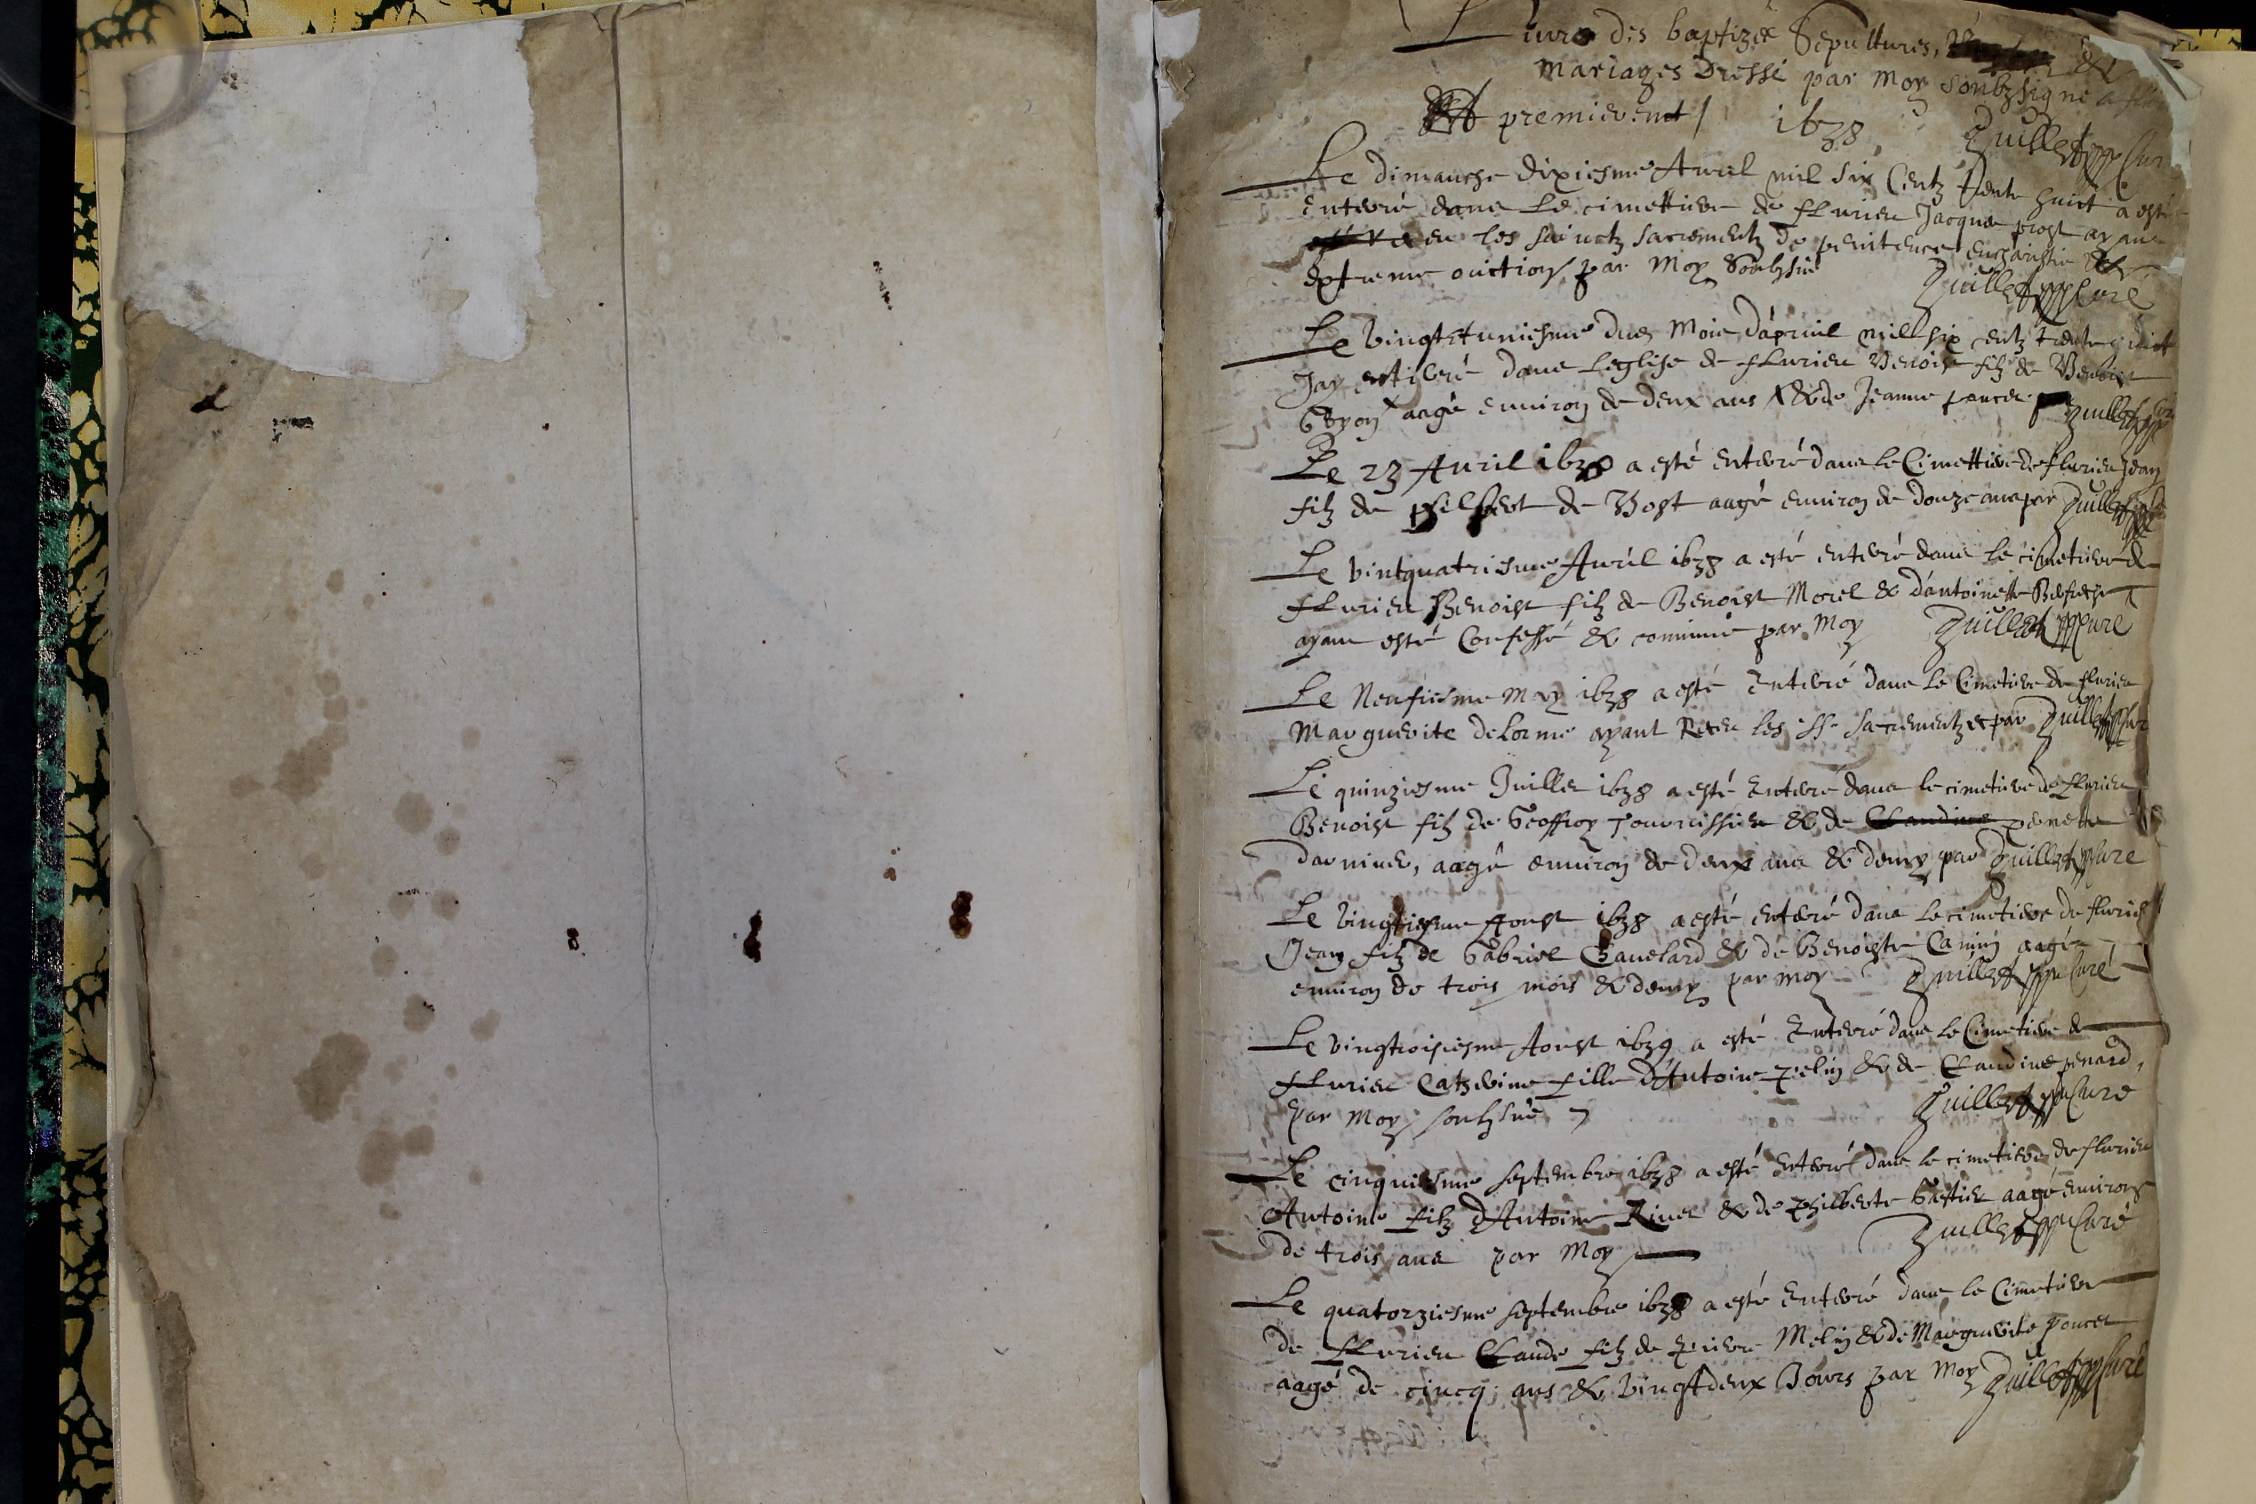 Livre des baptizés Sepultures, &
Mariages Dressé par Moy soubzsigné
premierem.t / 1638
Quillet curé
Le dimanche dixiesme Avril mil six Centz trente huict a esté
enterré dans le cimettiere de fleurieu Jacques prost ayant
receu les sainctz sacrementz de penitence eucharistie &
extreme onction par Moy Soubzsné
Quillet curé
Le vingt et uniesme du Mois d'apvril mill six centz trente huict
Jay enterré dans leglise de fleurieu Benoist filz de Benoist
Guyon aagé environ de deux ans & de Jeanne poncet
Quillet
Le 23 Avril 1638 a esté enterré dans le Cimettiere de fleurieu Jean
filz de philbert de Bost aagé environ de douze ans par Quillet
Le vintquatriesme Avril 1638 a esté enterré dans le cimetiere de
fleurieu Benoist filz de Benoist Morel & d'antoinette
ayant esté Confessé & comunié par Moy Quillet curé
Le Neufiesme May 1638 a esté Enterré dans le Cimetiere de fleurieu
Marguerite delorme ayant Receu les sts sacrementz par Quillet
Le quinziesme Juillet 1638 a esté Enterré dans le cimetiere de fleurieu
Benoist filz de Geoffroy & de Claudine pernette
aagé environ de deux ans & demy par Quillet curé
Le vingtiesme Aoust 1638 a esté enterré dans le cimetiere de fleurieu
Jean filz de Gabriel Chavelard & de Benoiste Canin aagé
environ de trois mois & demy par moy Quillet Curé
Le vingtroisiesme Aoust 1639 a esté Enterré dans le Cimetiere de
fleurieu Catherine fille d'Antoine & de Claudine penard,
par Moy soubzsné Quillet Curé
Le cinquiesme septembre 1638 a esté enterré dans le cimetiere de fleurieu
Antoine filz d'Antoine Rivet & de philberte aagé environ
de trois ans par Moy Quillet Curé
Le quatorziesme septembre 1638 a esté Enterré dans le Cimetiere
de fleurieu Claude filz de pierre Melin & de Marguerite poncet
aagé de cincq ans & vingtdeux Jours par Moy Quillet Curé